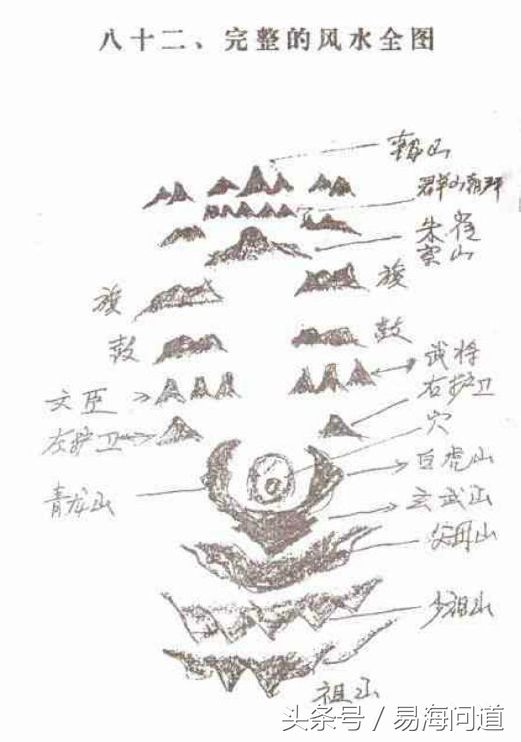 八十二、完整的风水全图
朝山
群山朝拜
朱雀
案山
旗
旗
鼓
鼓
武将
文臣
右护卫
左护卫
穴
白虎山
青龙山
玄武山
父母山
少祖山
祖山
头条号 / 易海问道